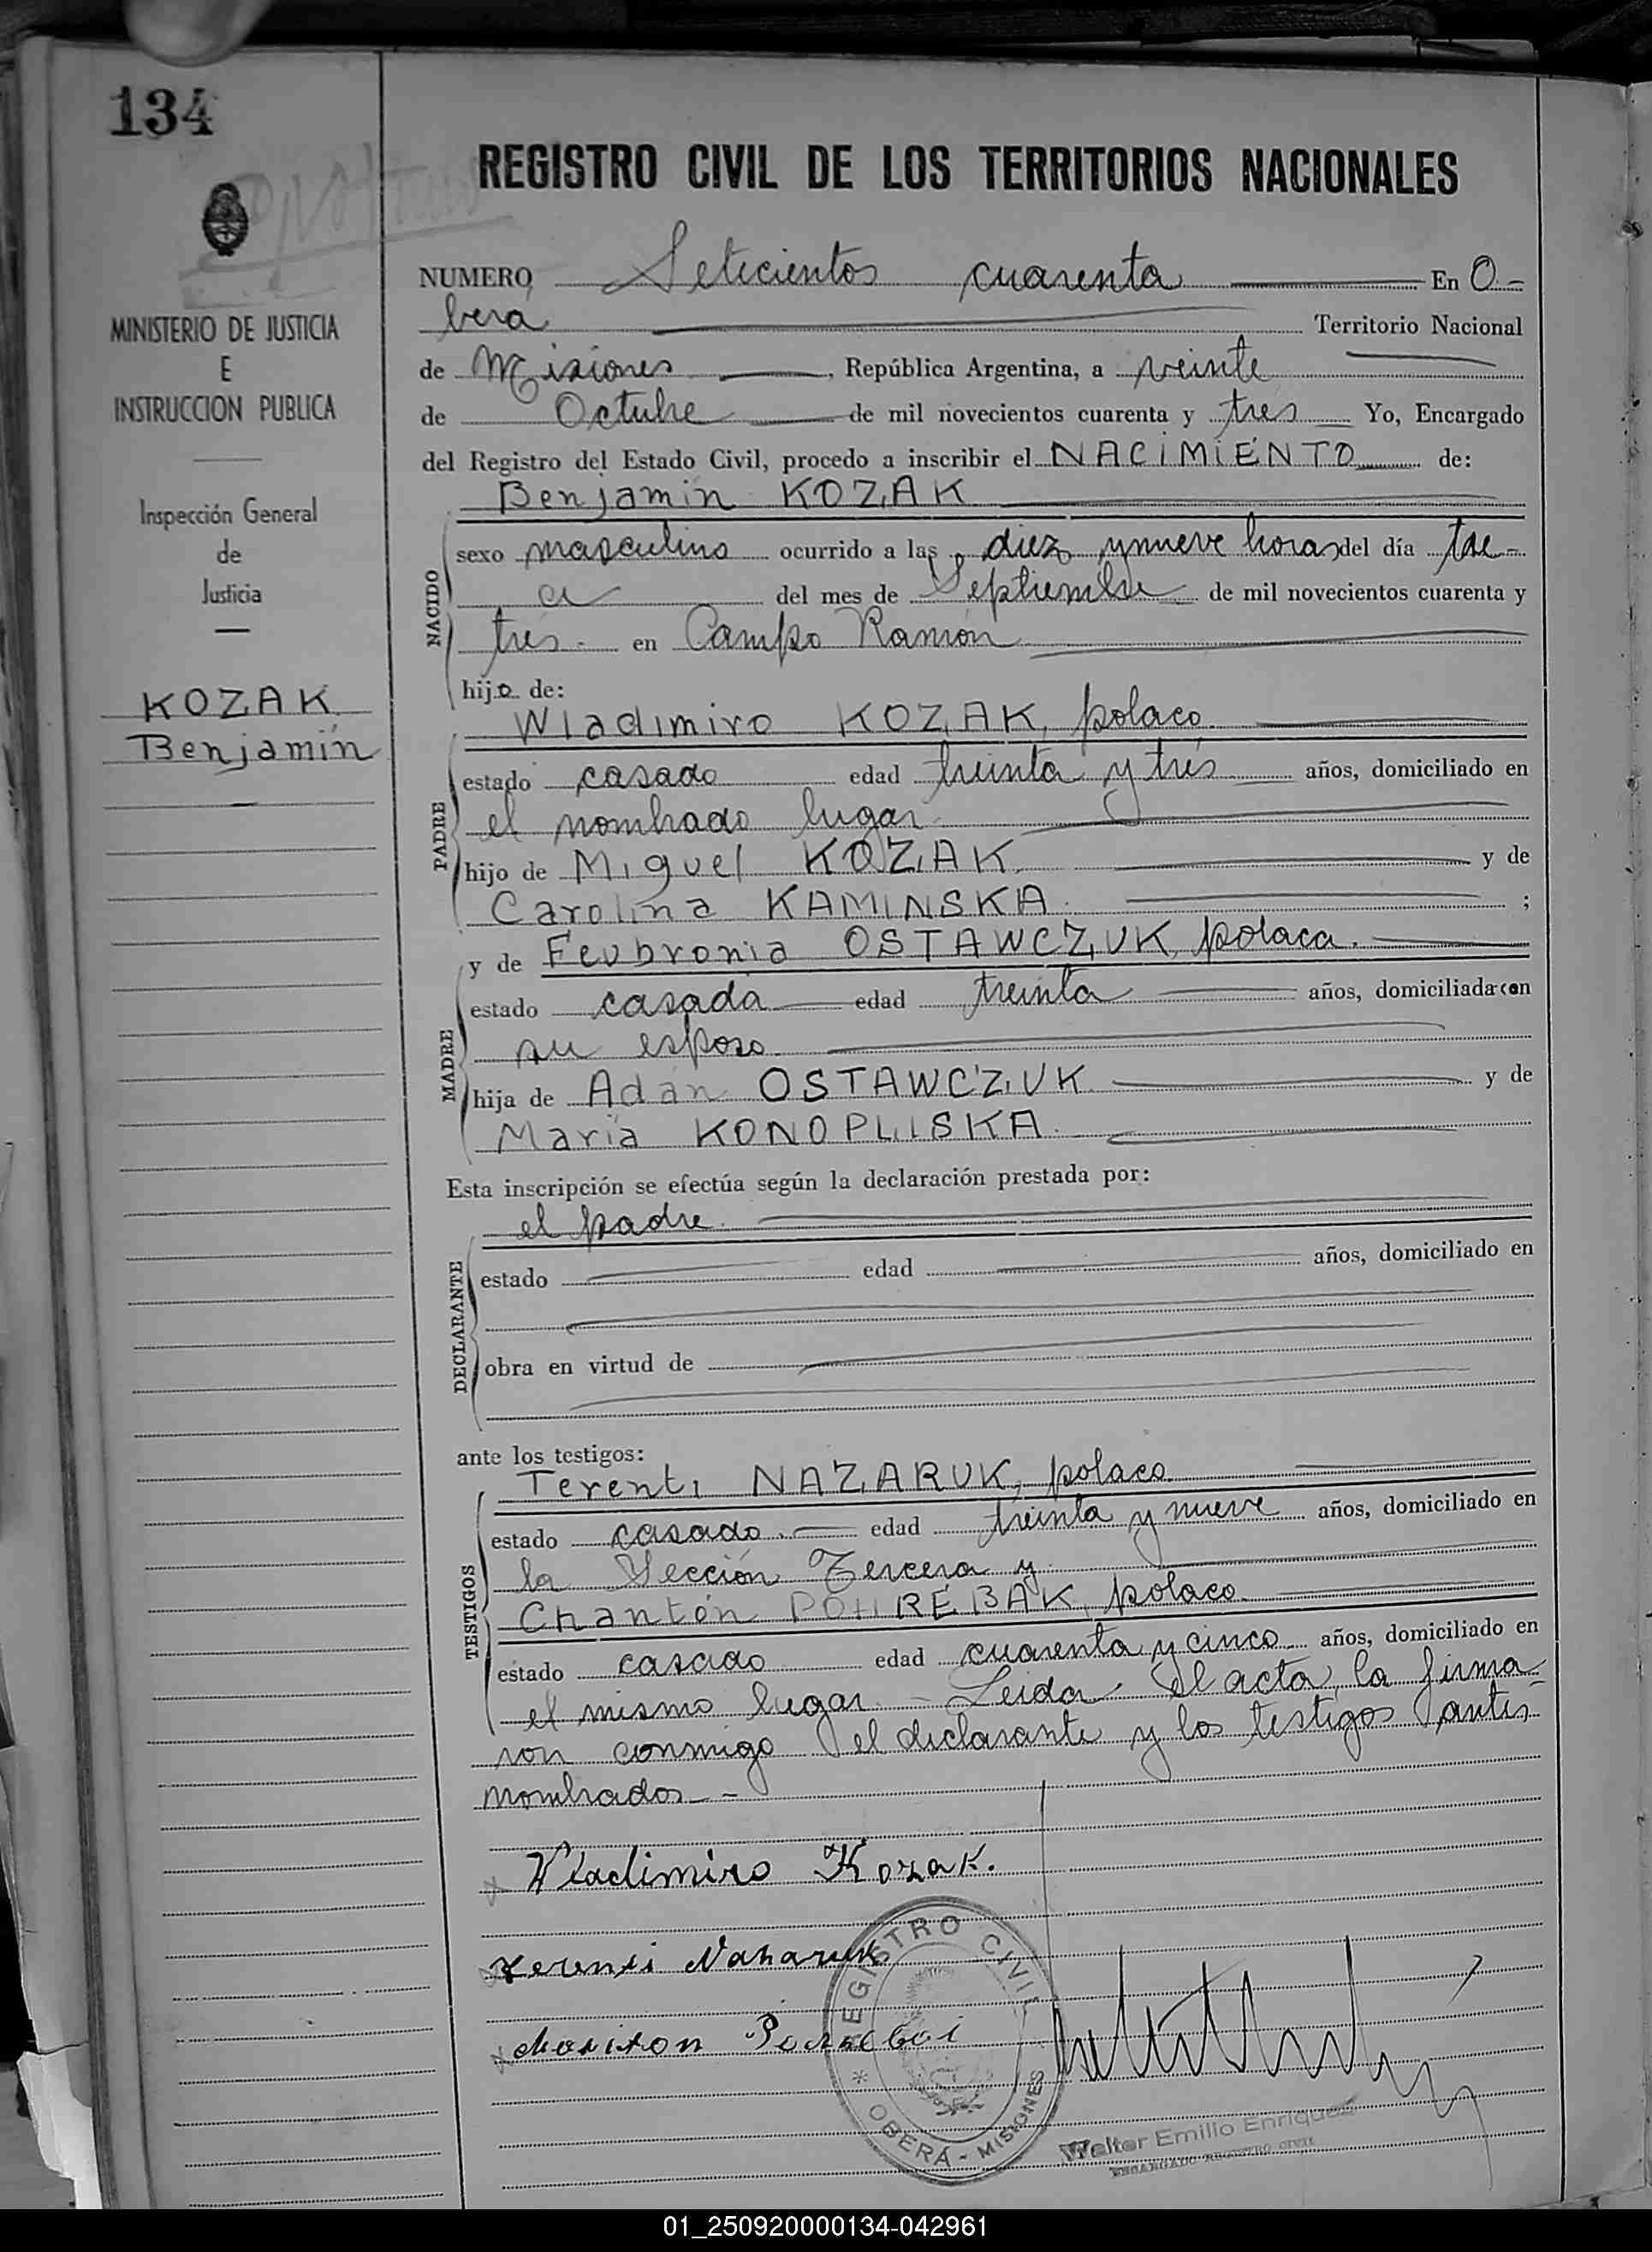 134
REGISTRO CIVIL DE LOS TERRITORIOS NACIONALES
MINISTERIO DE JUSTICIA
E
INSTRUCCION PUBLICA
Inspección General
de
Justicia
KOZAK
Benjamín
NUMERO Seteicientos cuarenta En O-
berá Territorio Nacional
de Misiones, República Argentina, a veinte
de Octubre de mil novecientos cuarenta y tres Yo, Encargado
del Registro del Estado Civil, procedo a inscribir el NACIMIENTO de:
Benjamín KOZAK
NACIDO
sexo masculino ocurrido a las diez y nueve horas del día tre-
ce del mes de Septiembre de mil novecientos cuarenta y
tres. en Campo Ramón
hijo de:
Wladimiro KOZAK, polaco.
PADRE
estado casado edad treinta y tres años, domiciliado en
el nombrado lugar.
hijo de Miguel KOZAK. y de
Carolina KAMINSKA. ;
y de Feubronia OSTAWCZUK, polaca.
MADRE
estado casada edad treinta años, domiciliada con
su esposo.
hija de Adán OSTAWCZUK. y de
María KONOPLISKA.
Esta inscripción se efectúa según la declaración prestada por:
el padre.
DECLARANTE
estado edad años, domiciliado en
obra en virtud de
ante los testigos:
Terenti NAZARUK, polaco.
TESTIGOS
estado casado. edad treinta y nueve años, domiciliado en
la Sección Tercera y
Chantón POHREBAK, polaco.
estado casado edad cuarenta y cinco años, domiciliado en
el mismo lugar. - Leida el acta, la firma-
ron conmigo el declarante y los testigos antes
nombrados.-
Wladimiro Kozak.
Terenti Nazaruk
REGISTRO CIVIL
* OBERÁ - MISIONES
Walter Emilio Enriquez
ENCARGADO REGISTRO CIVIL
01_250920000134-042961